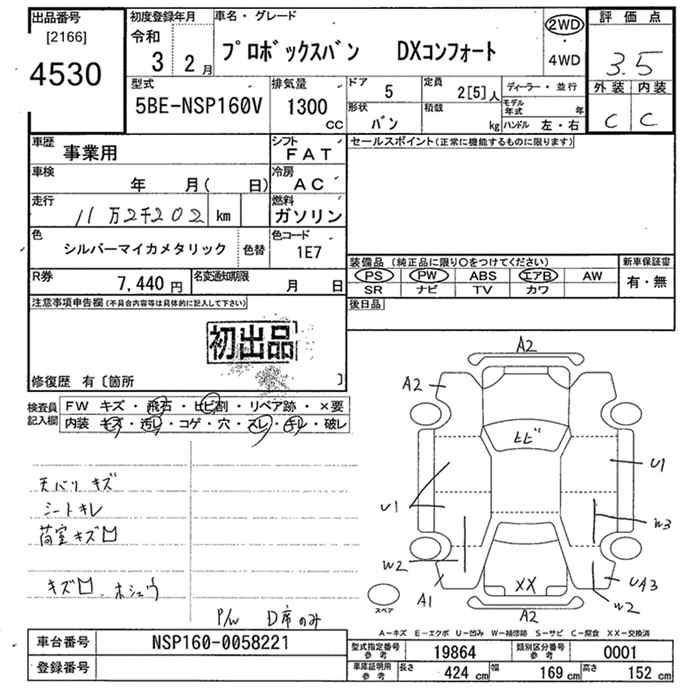 出品番号
[2166]
4530
初度登録年月
令和
3 2月
車名・グレード
プロボックスバン DXコンフォート
2WD
・
4WD
評価点
3.5
外装 内装
C C
型式
5BE-NSP160V
排気量
1300
CC
ドア 5
形状 バン
定員 2[5]人
積載 kg
ディーラー・並行
モデル年式 年
ハンドル 左・右
車歴 事業用
シフト FAT
車検 年 月( 日)
冷房 AC
走行 11万2千202 km
燃料 ガソリン
色 シルバーマイカメタリック 色替
色コード 1E7
R券 7,440円
名変通知期限 月 日
セールスポイント(正常に機能するものに限ります)
装備品(純正品に限り○をつけてください)
PS PW ABS エアB AW
SR ナビ TV カワ
新車保証書
有・無
後日品
注意事項申告欄(不具合内容等は具体的に記入して下さい)
初出品
修復歴 有〔箇所 〕
検査員記入欄
FW キズ・飛石・ヒビ割・リペア跡・×要
内装・キズ・汚レ・コゲ・穴・スレ・キレ・破レ
天バリキズ
シートキレ
荷室キズ凹
キズ凹、ホシュウ
P/W D席のみ
A2
A2
ヒビ
U1
U1
W3
W2
A1
XX
UA3
W2
A2
スペア
A-キズ E-エクボ U-凹み W-補修跡 S-サビ C-腐食 XX-交換済
車台番号 NSP160-0058221
登録番号
型式指定番号参考 19864
類別区分番号参考 0001
車庫証明用参考 長さ 424cm 幅 169cm 高さ 152cm